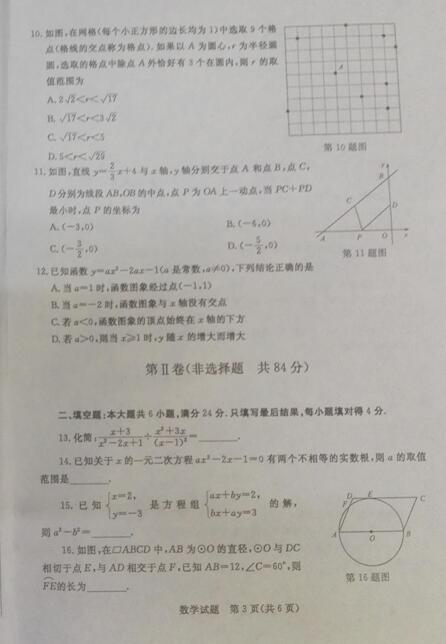 10. 如图,在网格(每个小正方形的边长均为1)中选取9个格
点(格线的交点称为格点). 如果以A为圆心,r为半径画
圆,选取的格点中除点A外恰好有3个在圆内,则r的取
值范围为
A. 2√2<r<√17
B. √17<r<3√2
C. √17<r<5
D. 5<r<√29
A
第10题图
11. 如图,直线y=2/3x+4与x轴,y轴分别交于点A和点B,点C,
D分别为线段AB,OB的中点,点P为OA上一动点,当PC+PD
最小时,点P的坐标为
A. (-3,0) B. (-6,0)
C. (-3/2,0) D. (-5/2,0)
y B C D A P O x
第11题图
12. 已知函数y=ax²-2ax-1(a是常数,a≠0),下列结论正确的是
A. 当a=1时,函数图象经过点(-1,1)
B. 当a=-2时,函数图象与x轴没有交点
C. 若a<0,函数图象的顶点始终在x轴的下方
D. 若a>0,则当x≥1时,y随x的增大而增大
第Ⅱ卷(非选择题 共84分)
二、填空题:本大题共6小题,满分24分.只填写最后结果,每小题填对得4分.
13. 化简:(x+3)/(x²-2x+1)÷(x²+3x)/(x-1)²=______.
14. 已知关于x的一元二次方程ax²-2x-1=0有两个不相等的实数根,则a的取值
范围是______.
15. 已知{x=2, y=-3 是方程组{ax+by=2, bx+ay=3 的解,
则a²-b²=______.
16. 如图,在□ABCD中,AB为⊙O的直径,⊙O与DC
相切于点E,与AD相交于点F,已知AB=12,∠C=60°,则
FE的长为______.
D E C F A O B
第16题图
数学试题 第3页(共6页)